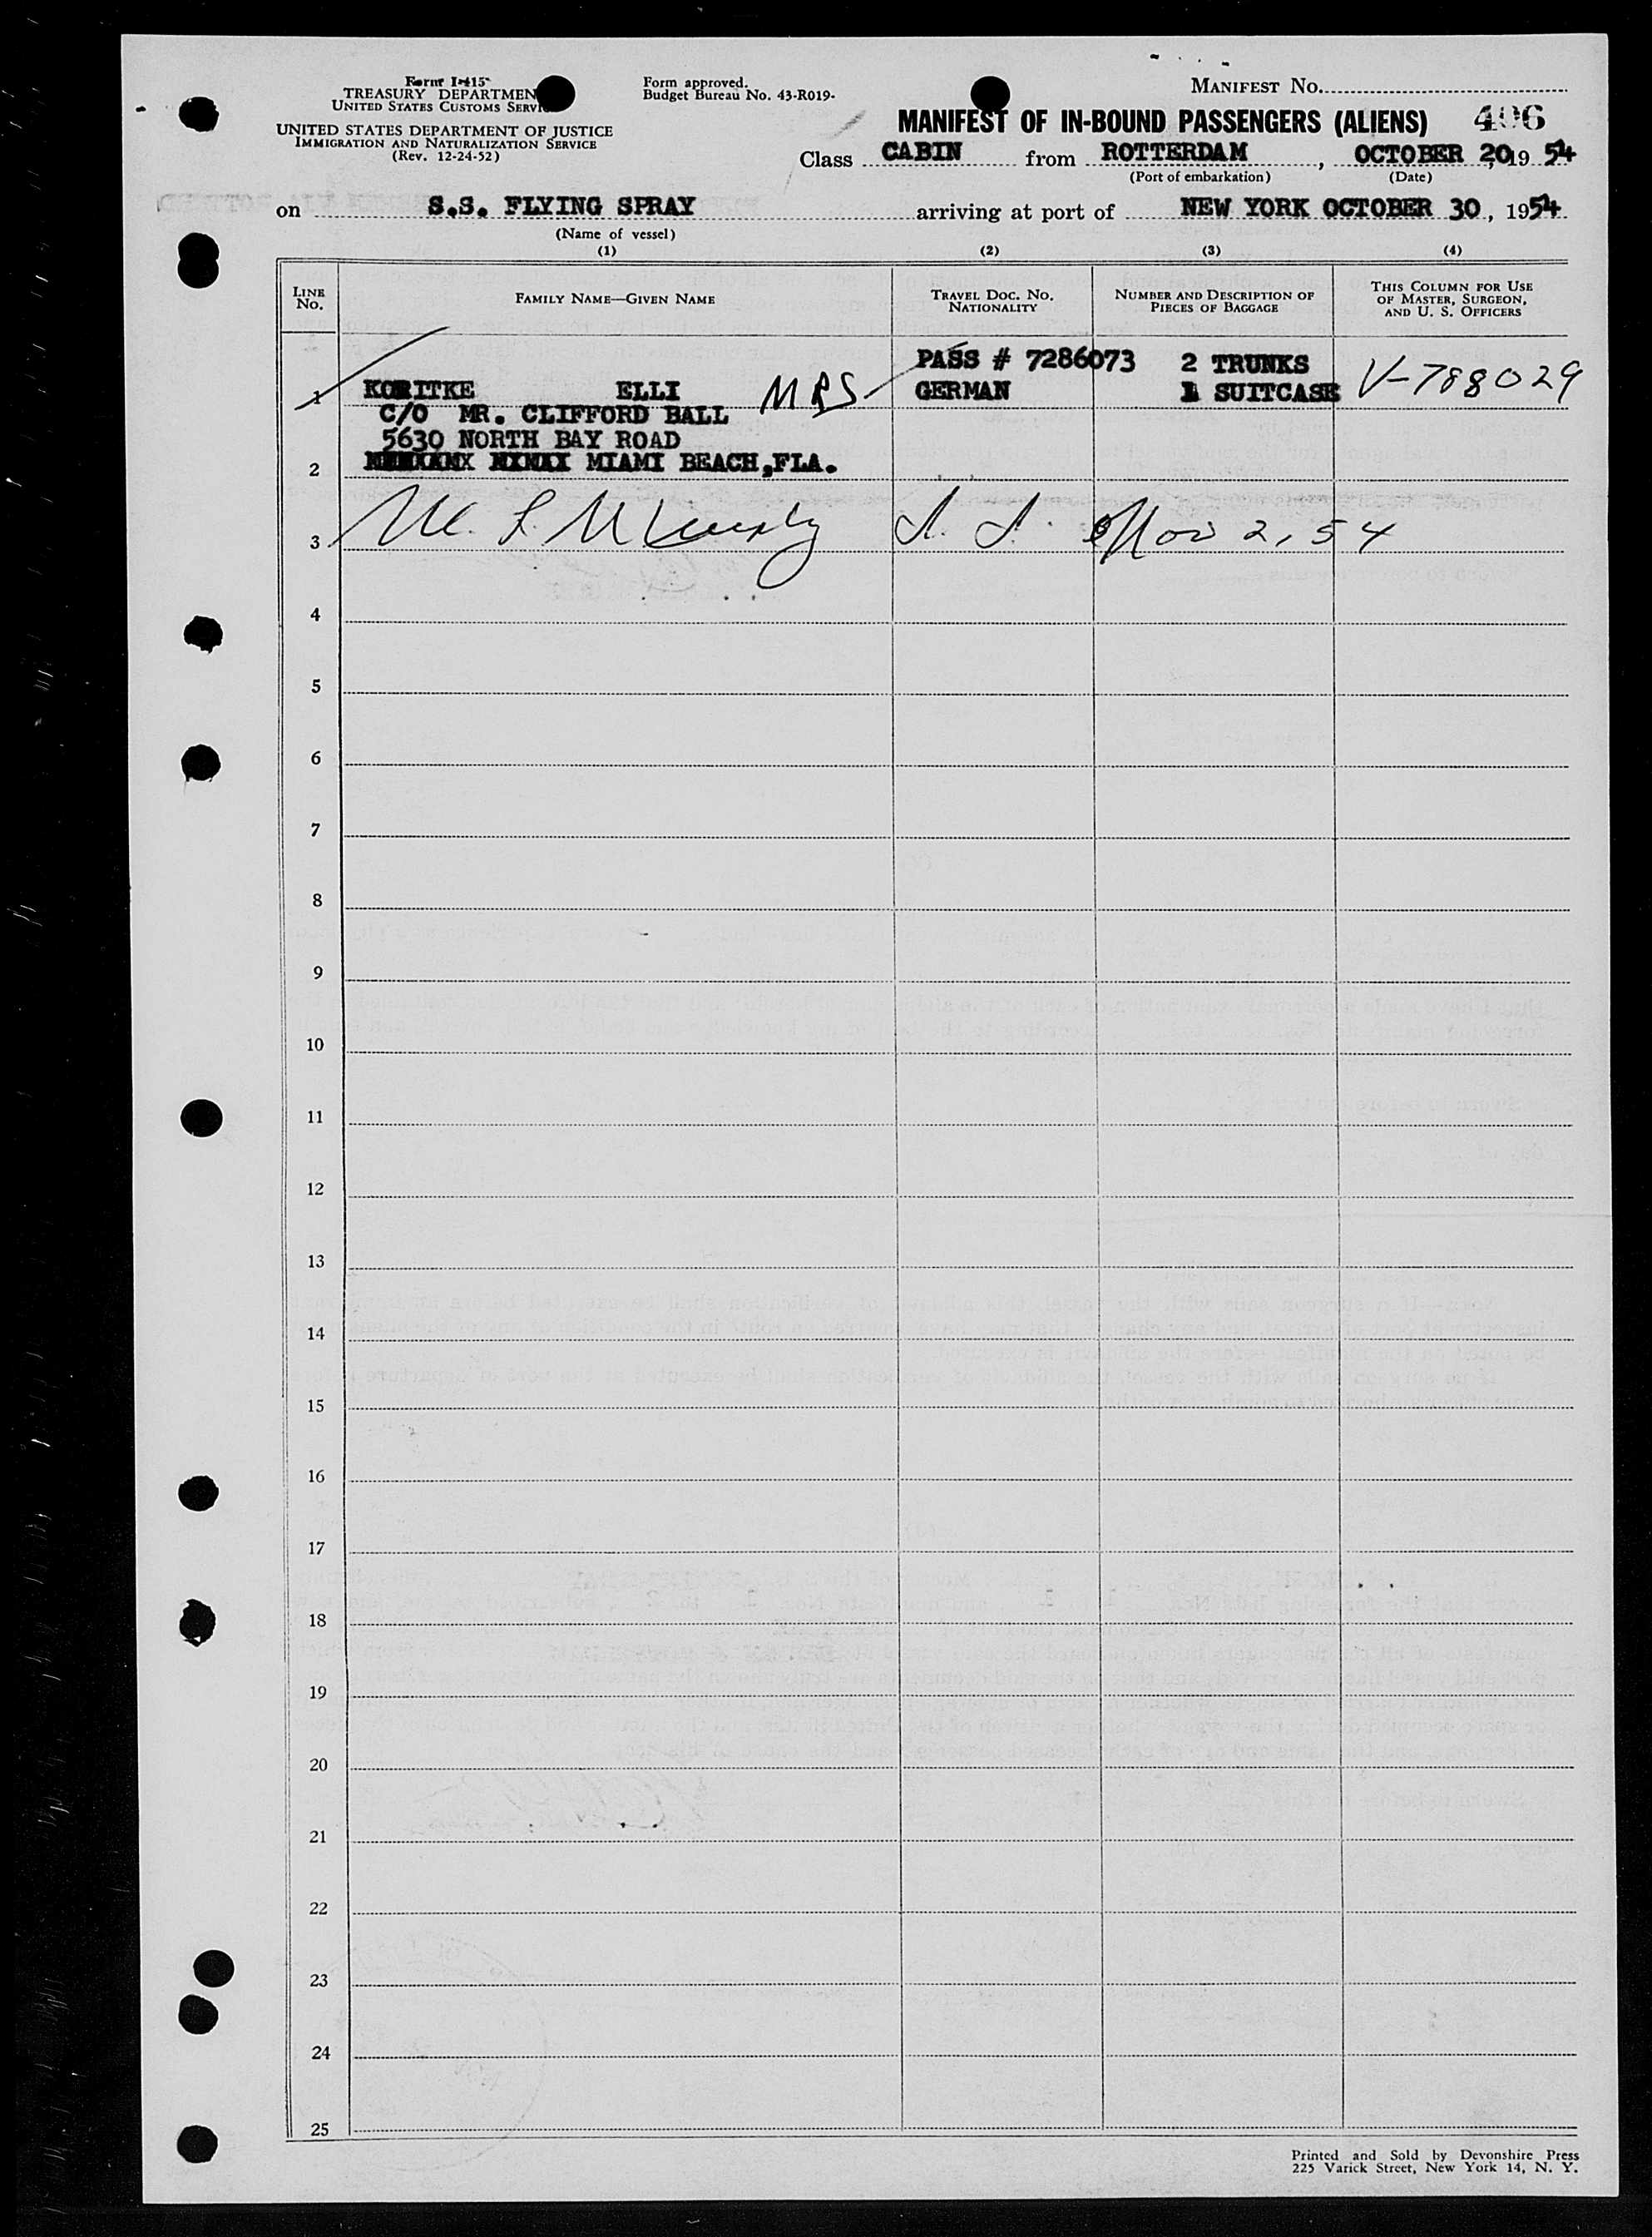 Form I-415
TREASURY DEPARTMENT
UNITED STATES CUSTOMS SERVICE
UNITED STATES DEPARTMENT OF JUSTICE
IMMIGRATION AND NATURALIZATION SERVICE
(Rev. 12-24-52)
Form approved.
Budget Bureau No. 43-R019-
MANIFEST No.
MANIFEST OF IN-BOUND PASSENGERS (ALIENS) 406
Class CABIN from ROTTERDAM , OCTOBER 20, 19 54
(Port of embarkation) (Date)
on S.S. FLYING SPRAY arriving at port of NEW YORK OCTOBER 30, 1954
(Name of vessel)
(1) (2) (3) (4)
LINE No. FAMILY NAME—GIVEN NAME TRAVEL DOC. No. NATIONALITY NUMBER AND DESCRIPTION OF PIECES OF BAGGAGE THIS COLUMN FOR USE OF MASTER, SURGEON, AND U. S. OFFICERS
PASS # 7286073 2 TRUNKS
1 KORITKE ELLI MRS GERMAN 1 SUITCASE V-788029
C/O MR. CLIFFORD BALL
5630 NORTH BAY ROAD
2 MIAMI BEACH,FLA.
3 Nov 2, 54
4
5
6
7
8
9
10
11
12
13
14
15
16
17
18
19
20
21
22
23
24
25
Printed and Sold by Devonshire Press
225 Varick Street, New York 14, N. Y.